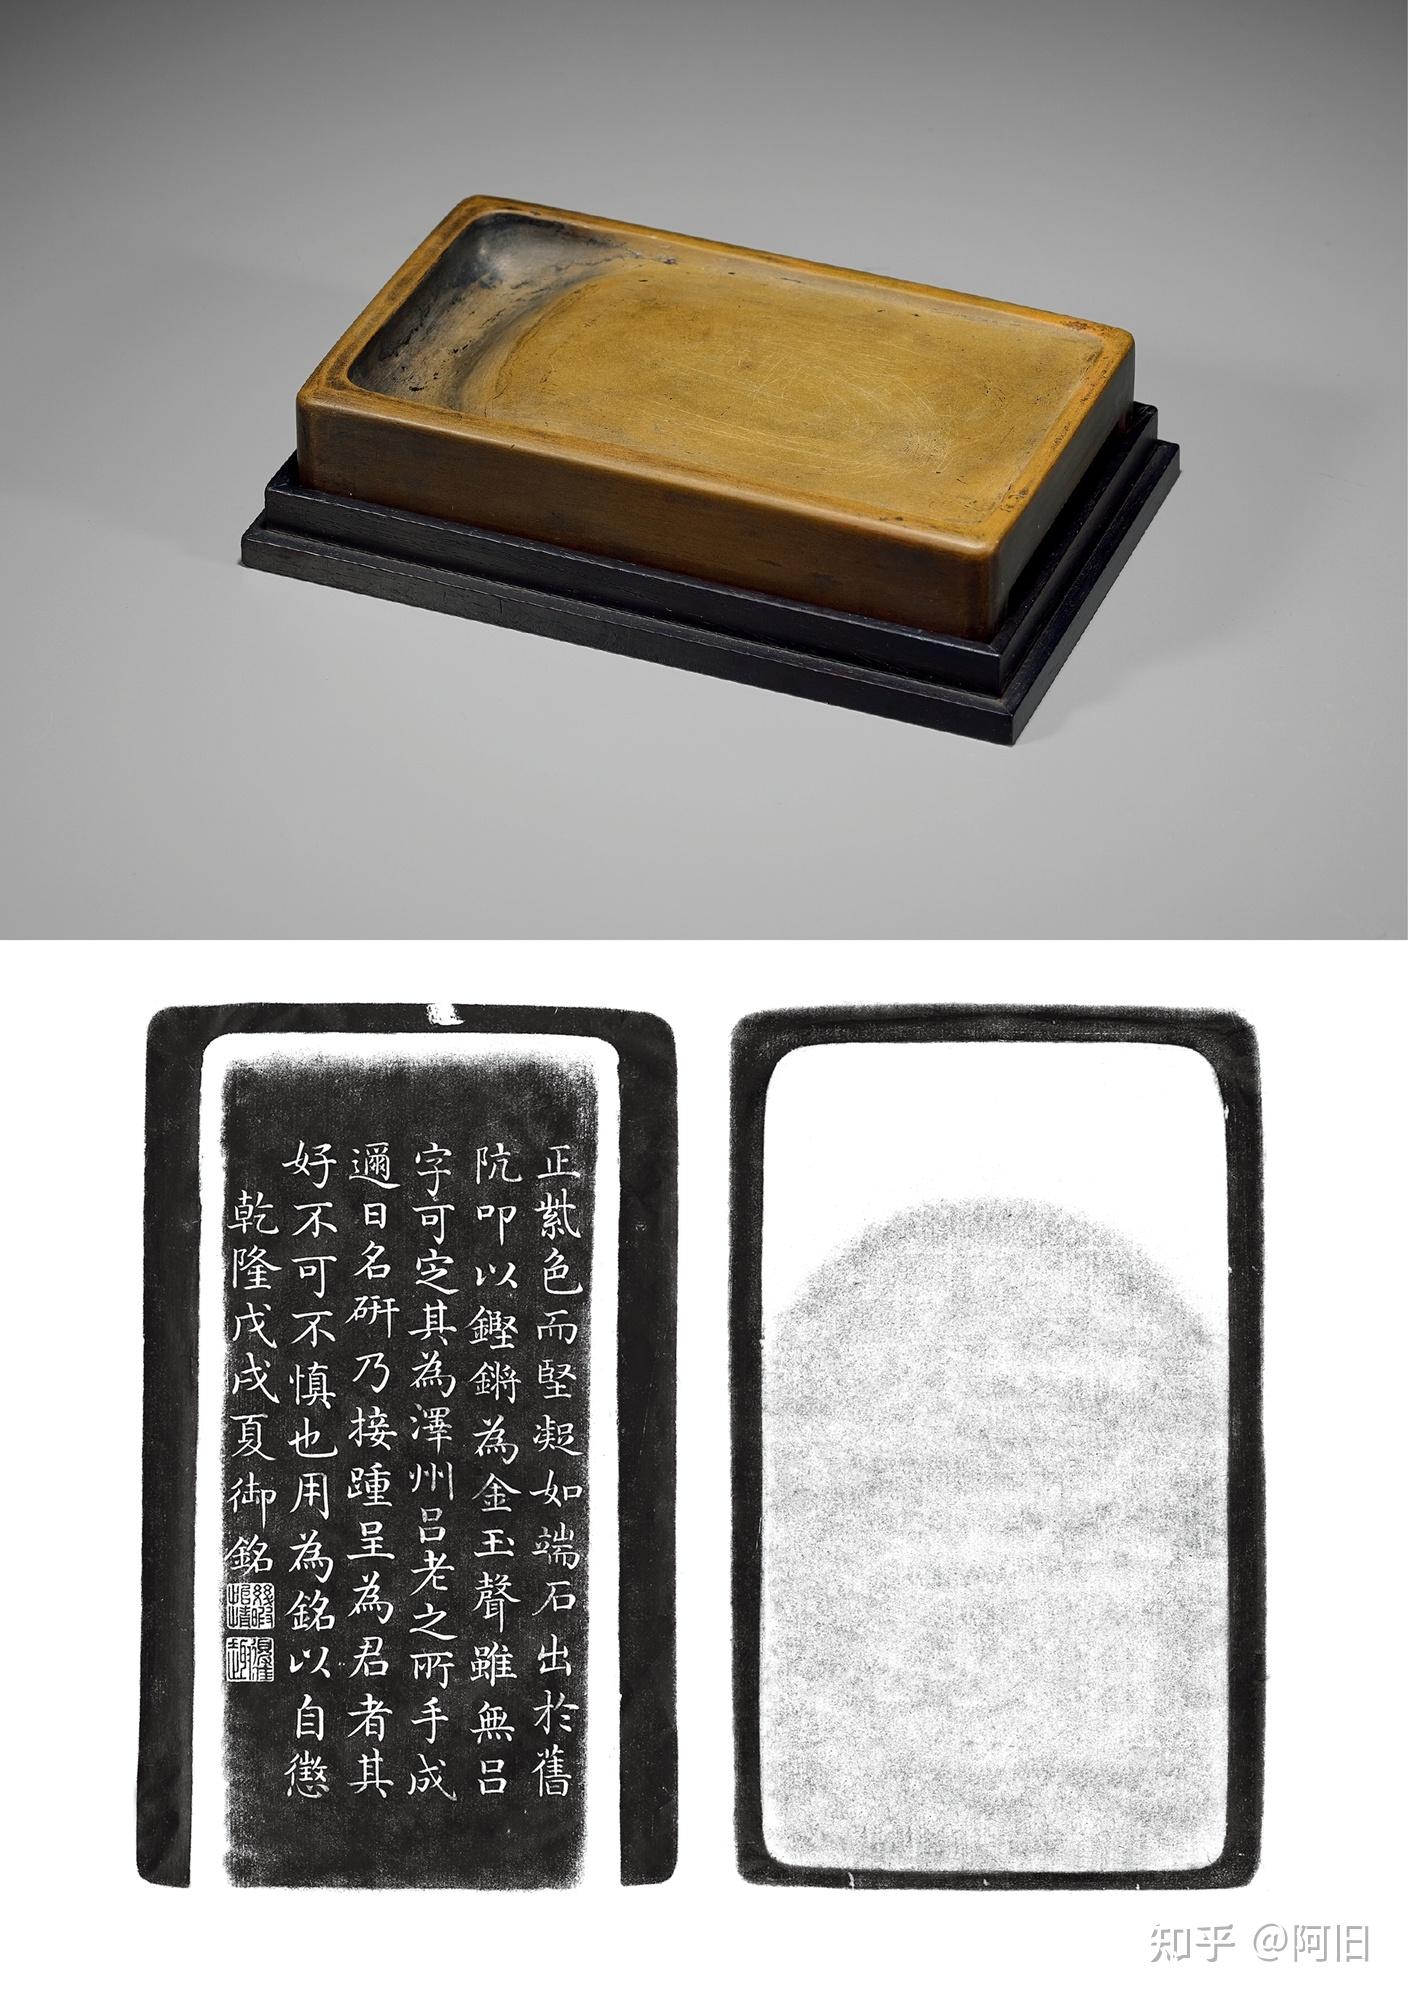 正紫色而堅凝如端石出於舊
阬叩以鏗鏘為金玉聲雖無呂
字可定其為澤州呂老之所手成
邇日名硏乃接踵呈為君者其
好不可不慎也用為銘以自懲
乾隆戊戌夏御銘
幾暇怡情
得佳趣
知乎 @阿旧